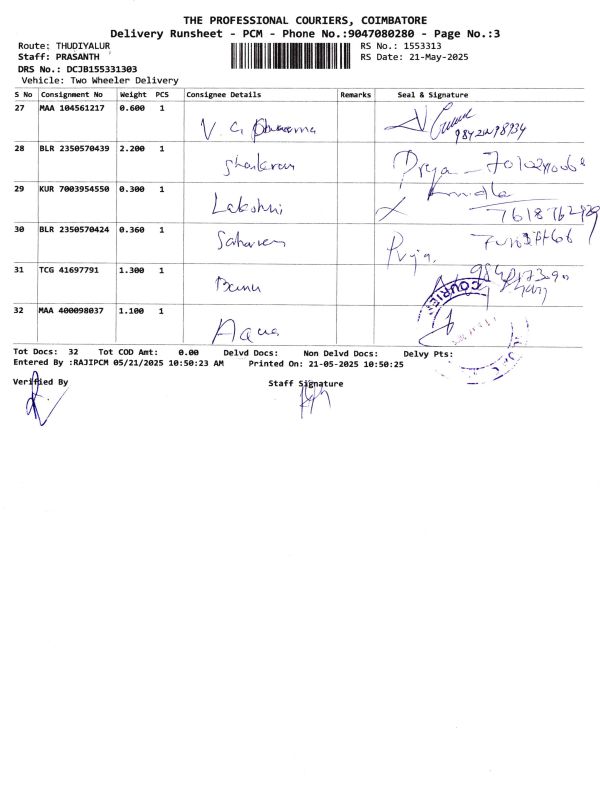 THE PROFESSIONAL COURIERS, COIMBATORE
Delivery Runsheet - PCM - Phone No.:9047080280 - Page No.:3
Route: THUDIYALUR RS No.: 1553313
Staff: PRASANTH RS Date: 21-May-2025
DRS No.: DCJB155331303
Vehicle: Two Wheeler Delivery
S No Consignment No Weight PCS Consignee Details Remarks Seal & Signature
27 MAA 104561217 0.600 1
V. G
28 BLR 2350570439 2.200 1
Shankaran
29 KUR 7003954550 0.300 1
Lakshmi
30 BLR 2350570424 0.360 1
Priya.
31 TCG 41697791 1.300 1
Banu
COURIER
32 MAA 400098037 1.100 1
Aqua
Tot Docs: 32 Tot COD Amt: 0.00 Delvd Docs: Non Delvd Docs: Delvy Pts:
Entered By :RAJIPCM 05/21/2025 10:50:23 AM Printed On: 21-05-2025 10:50:25
Verified By Staff Signature